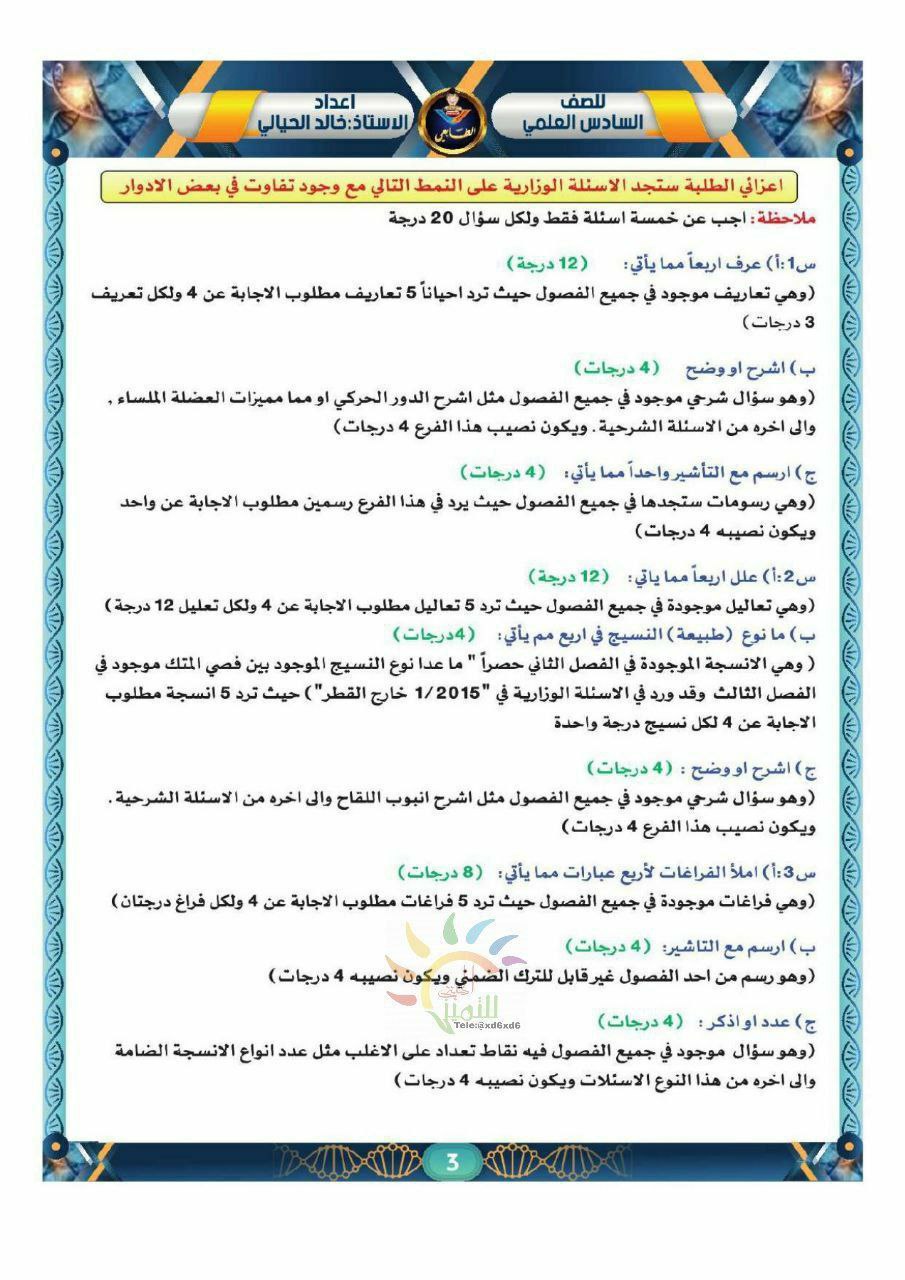 للصف
السادس العلمي
الطابعي
اعداد
الاستاذ:خالد الحيالي
اعزائي الطلبة ستجد الاسئلة الوزارية على النمط التالي مع وجود تفاوت في بعض الادوار
ملاحظة: اجب عن خمسة اسئلة فقط ولكل سؤال 20 درجة
س1:أ) عرف اربعاً مما يأتي: (12 درجة)
(وهي تعاريف موجود في جميع الفصول حيث ترد احياناً 5 تعاريف مطلوب الاجابة عن 4 ولكل تعريف
3 درجات)
ب) اشرح او وضح (4 درجات)
(وهو سؤال شرحي موجود في جميع الفصول مثل اشرح الدور الحركي او مما مميزات العضلة الملساء ,
والى اخره من الاسئلة الشرحية . ويكون نصيب هذا الفرع 4 درجات)
ج) ارسم مع التأشير واحداً مما يأتي: (4 درجات)
(وهي رسومات ستجدها في جميع الفصول حيث يرد في هذا الفرع رسمين مطلوب الاجابة عن واحد
ويكون نصيبه 4 درجات)
س2:أ) علل اربعاً مما ياتي: (12 درجة)
(وهي تعاليل موجودة في جميع الفصول حيث ترد 5 تعاليل مطلوب الاجابة عن 4 ولكل تعليل 12 درجة)
ب) ما نوع (طبيعة) النسيج في اربع مم يأتي: (4درجات)
( وهي الانسجة الموجودة في الفصل الثاني حصراً " ما عدا نوع النسيج الموجود بين فصي المتك موجود في
الفصل الثالث وقد ورد في الاسئلة الوزارية في "1/2015 خارج القطر") حيث ترد 5 انسجة مطلوب
الاجابة عن 4 لكل نسيج درجة واحدة
ج) اشرح او وضح : (4 درجات)
(وهو سؤال شرحي موجود في جميع الفصول مثل اشرح انبوب اللقاح والى اخره من الاسئلة الشرحية .
ويكون نصيب هذا الفرع 4 درجات)
س3:أ) املأ الفراغات لأربع عبارات مما يأتي: (8 درجات)
(وهي فراغات موجودة في جميع الفصول حيث ترد 5 فراغات مطلوب الاجابة عن 4 ولكل فراغ درجتان)
ب) ارسم مع التاشير: (4 درجات)
(وهو رسم من احد الفصول غير قابل للترك الضمني ويكون نصيبه 4 درجات)
للتميز
Tele:@xd6xd6
ج) عدد او اذكر : (4 درجات)
(وهو سؤال موجود في جميع الفصول فيه نقاط تعداد على الاغلب مثل عدد انواع الانسجة الضامة
والى اخره من هذا النوع الاسئلات ويكون نصيبه 4 درجات)
3